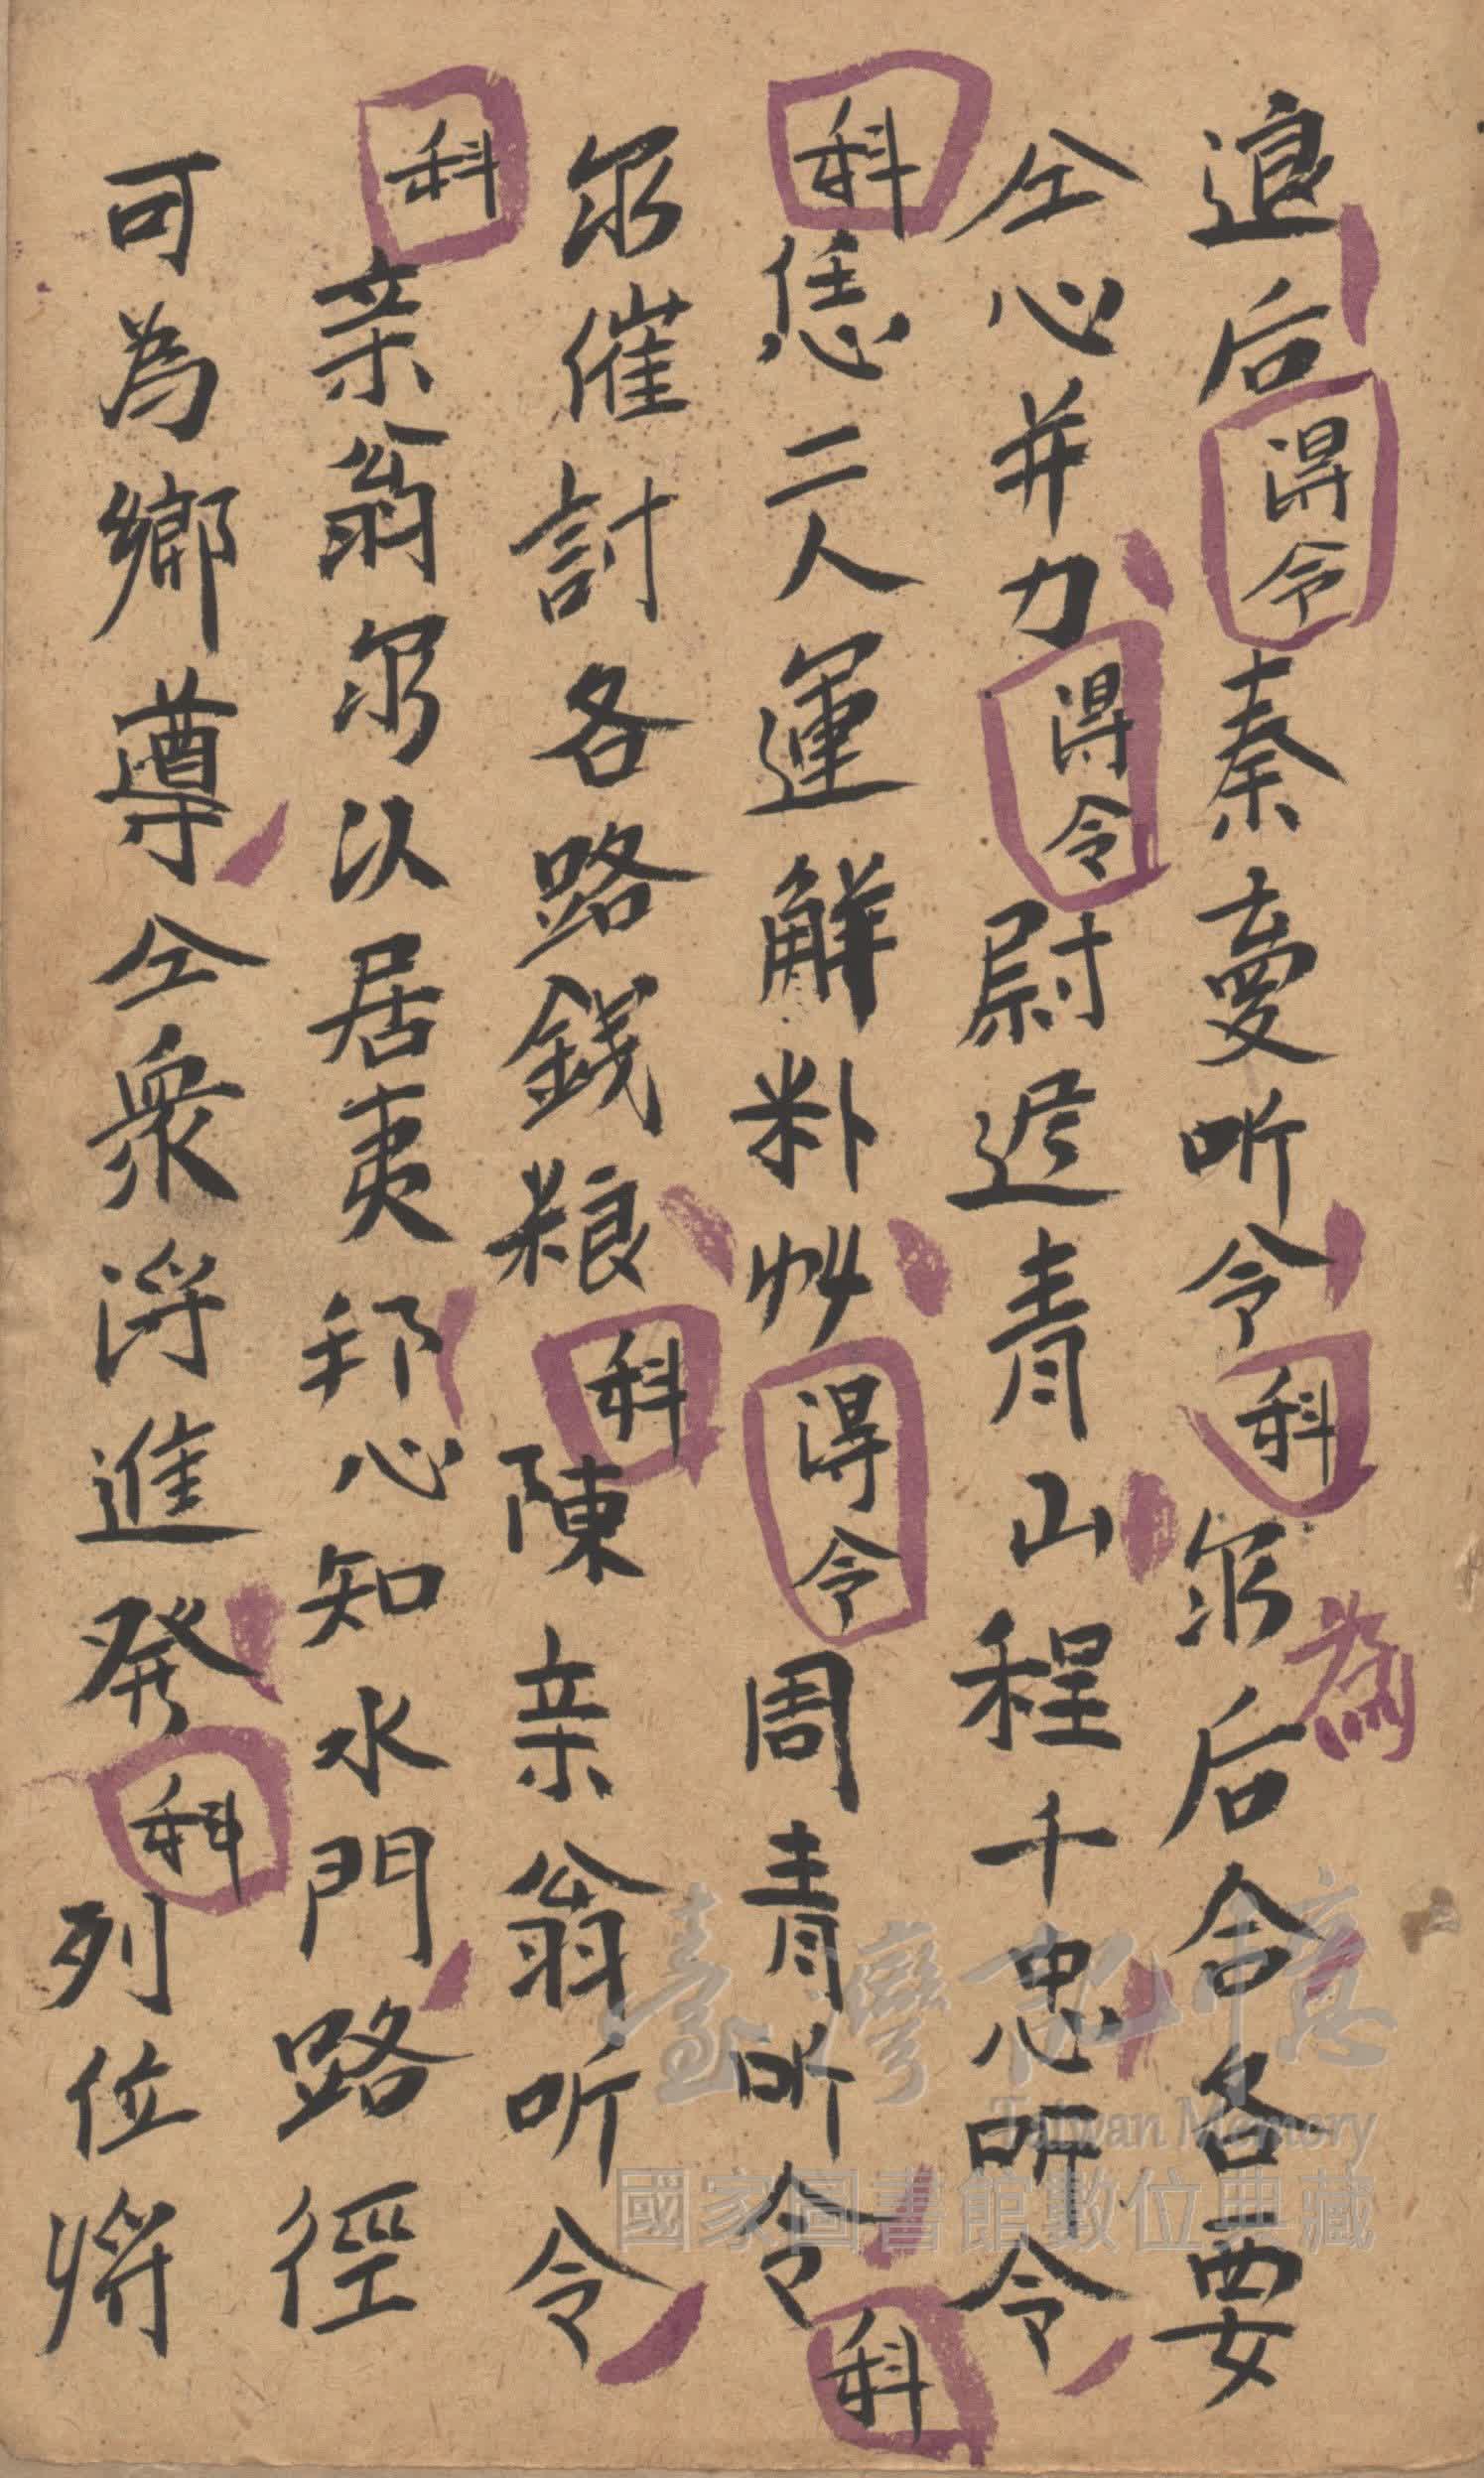 追后得令秦憂听令科尔為后合各要
仝心并力得令尉迟青山程千忠听令
科恁二人運解料艸得令周青听令科
尔催討各路錢粮科陳亲翁听令
科亲翁尔以居夷邦心知水門路徑
可為鄉導仝衆将進発科列位将
臺灣記憶
Taiwan Memory
國家圖書館數位典藏